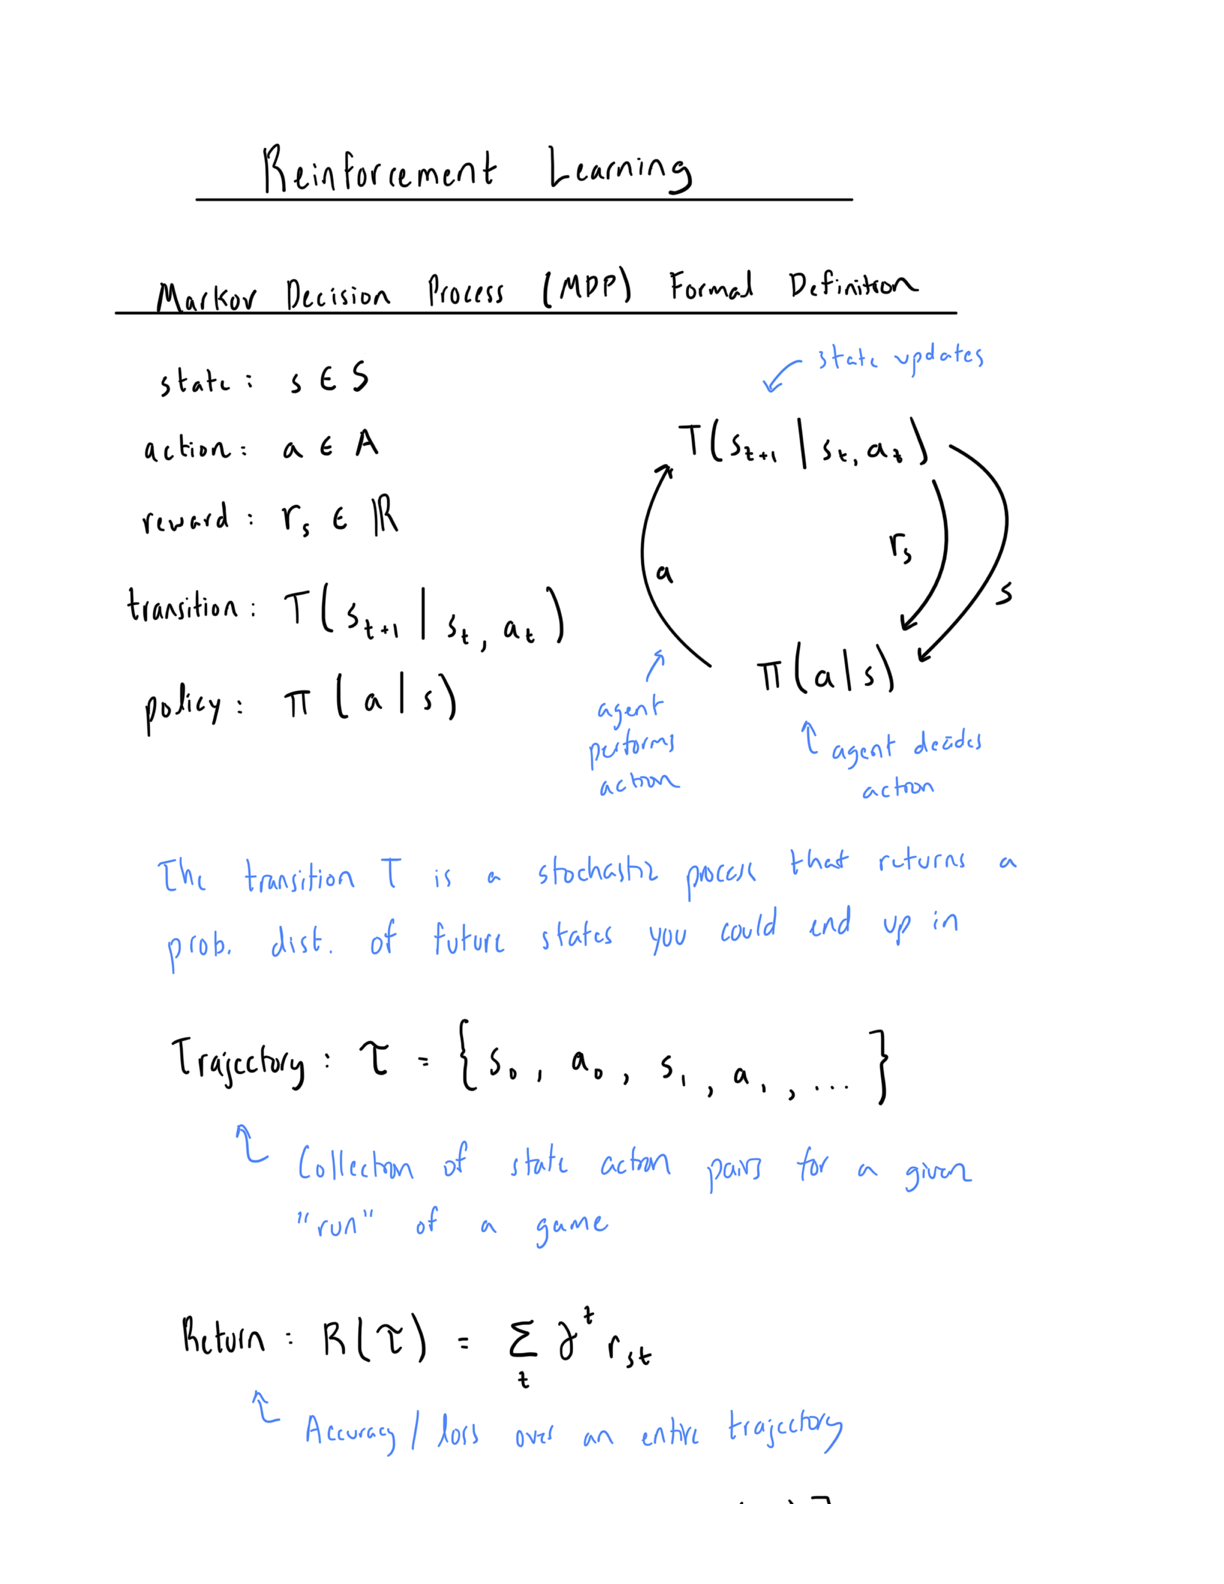 Reinforcement Learning
Markov Decision Process (MDP) Formal Definition
state: s ∈ S
action: a ∈ A
reward: r_s ∈ ℝ
transition: T(s_{t+1} | s_t, a_t)
policy: π(a|s)
state updates
T(s_{t+1} | s_t, a_t)
a
r_s
s
π(a|s)
agent
performs
action
agent decides
action
The transition T is a stochastic process that returns a
prob. dist. of future states you could end up in
Trajectory: τ = {s_0, a_0, s_1, a_1, ...}
Collection of state action pairs for a given
"run" of a game
Return: R(τ) = Σ_t γ^t r_{st}
Accuracy/loss over an entire trajectory